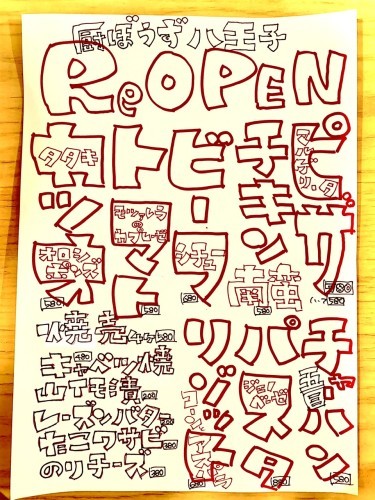 厨ぼうず 八王子
Re OPEN
ピザ
マルゲリータ
ハーフ 580
チキン南蛮
580
ビーフ
シチュー
680
トマト
モッツァレラ
の
カプレーゼ
580
カツオ
タタキ
オロシ
ポンズ
580
チャーハン
580
パスタ
ジェノ
ベーゼ
リゾット
焼売 4ケ 580
キャベツ焼 480
山イモ漬
レーズンバター
たこワサビ 380
のりチーズ 380